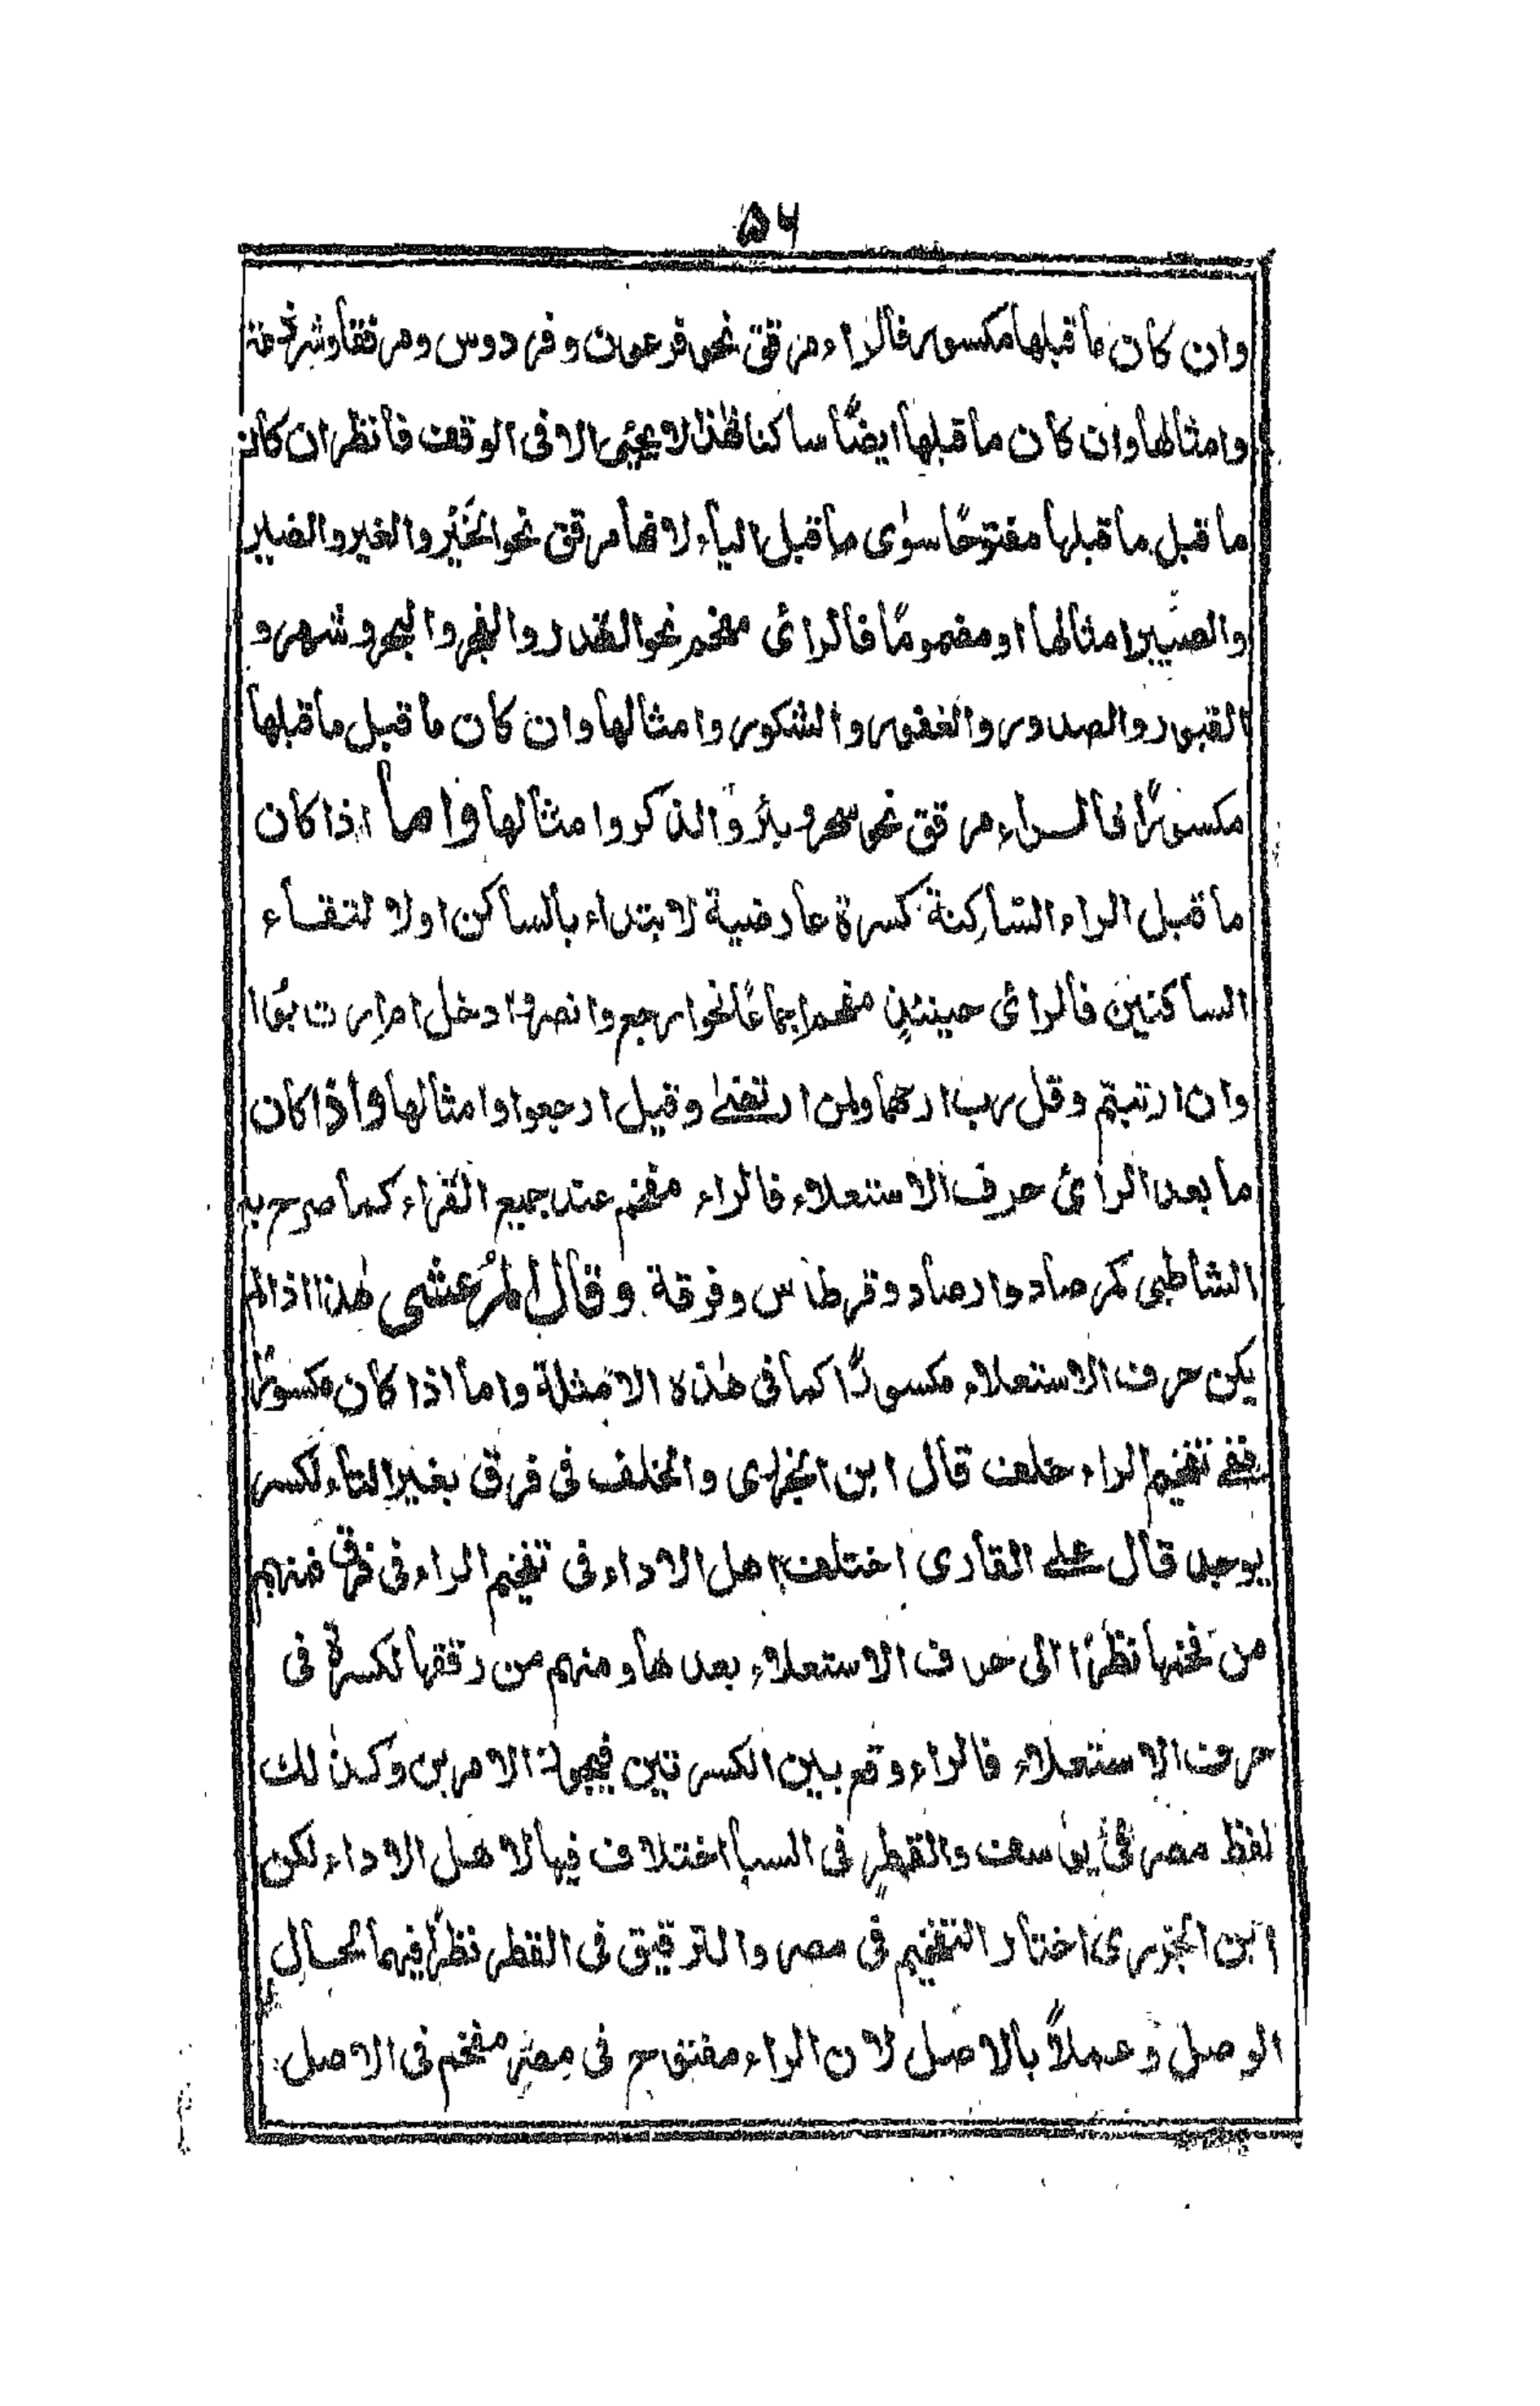 ۵۶
وان كان ما قبلها مكسور فالراء مرقق نحو فرعون وفردوس ومرفقا وشرذمة
وامثالها وان كان ما قبلها ايضًا ساكنا فهٰذا لا يجيئ الا فى الوقف فانظر ان كان
ما قبل ما قبلها مفتوحًا سوٰى ما قبل الياء لانها مرقق نحو الخَيْر والغير والضير
والصيير امثالها او مضمومًا فالرائ مفخم نحو القدر والفجر والبحر وشهر و
القبور والصدور والغفور والشكور وامثالها وان كان ما قبل ما قبلها
مكسورًا فالراء مرقق نحو سحر وبئر والذكر وامثالها واما اذا كان
ما قبل الراء الساكنة كسرة عارضية لابتداء بالساكن او لالتقاء
الساكنين فالرائ حينئذٍ مفخم اجماعًا نحو ارجع وانصر وادخل ام ارتابوا
وان ارتبتم وقل رب ارحمهما ولمن ارتضٰى وقيل ارجعوا وامثالها واذا كان
ما بعد الرائ حرف الاستعلاء فالراء مفخم عند جميع القراء كما صرح به
الشاطبى كمرصاد وارصاد وقرطاس وفرقة وقال المرعشى هٰذا اذا لم
يكن حرف الاستعلاء مكسورًا كما فى هٰذه الامثلة واما اذا كان مكسورًا
ففى تفخيم الراء خلف قال ابن الجزرى والخلف فى فرق بغير التاء لكسر
يوجد قال على القارى اختلف اهل الاداء فى تفخيم الراء فى فرق فمنهم
من فخمها نظرًا الى حرف الاستعلاء بعدها ومنهم من رققها لكسرة فى
حرف الاستعلاء فالراء وقع بين الكسرتين فيجوز الامرين وكذٰلك
لفظ مصر فى يوسف والقطر فى السبا اختلاف فيها لاهل الاداء لكن
ابن الجزرى اختار التفخيم فى مصر والترقيق فى القطر نظرًا فيهما لحال
الوصل وعملاً بالاصل لان الراء مفتوح فى مصر مفخم فى الاصل